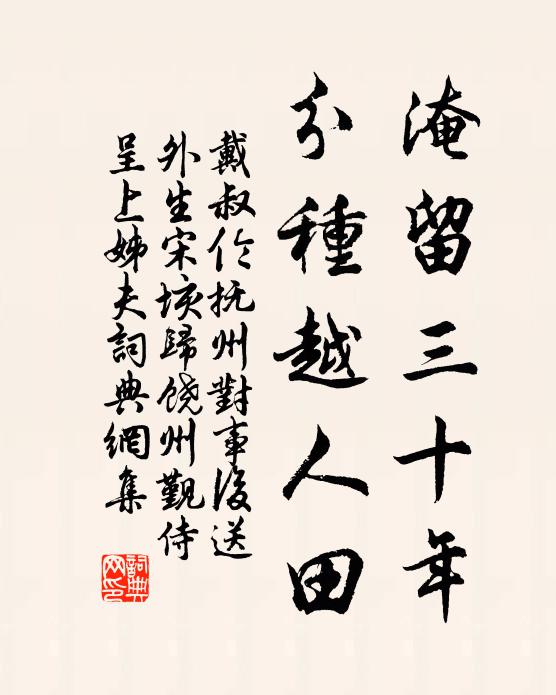 淹留三十年
分種越人田
戴叔伦抚州對事後送
外生宋垓歸饶州觐侍
呈上姊夫詞典網集
詞典网印